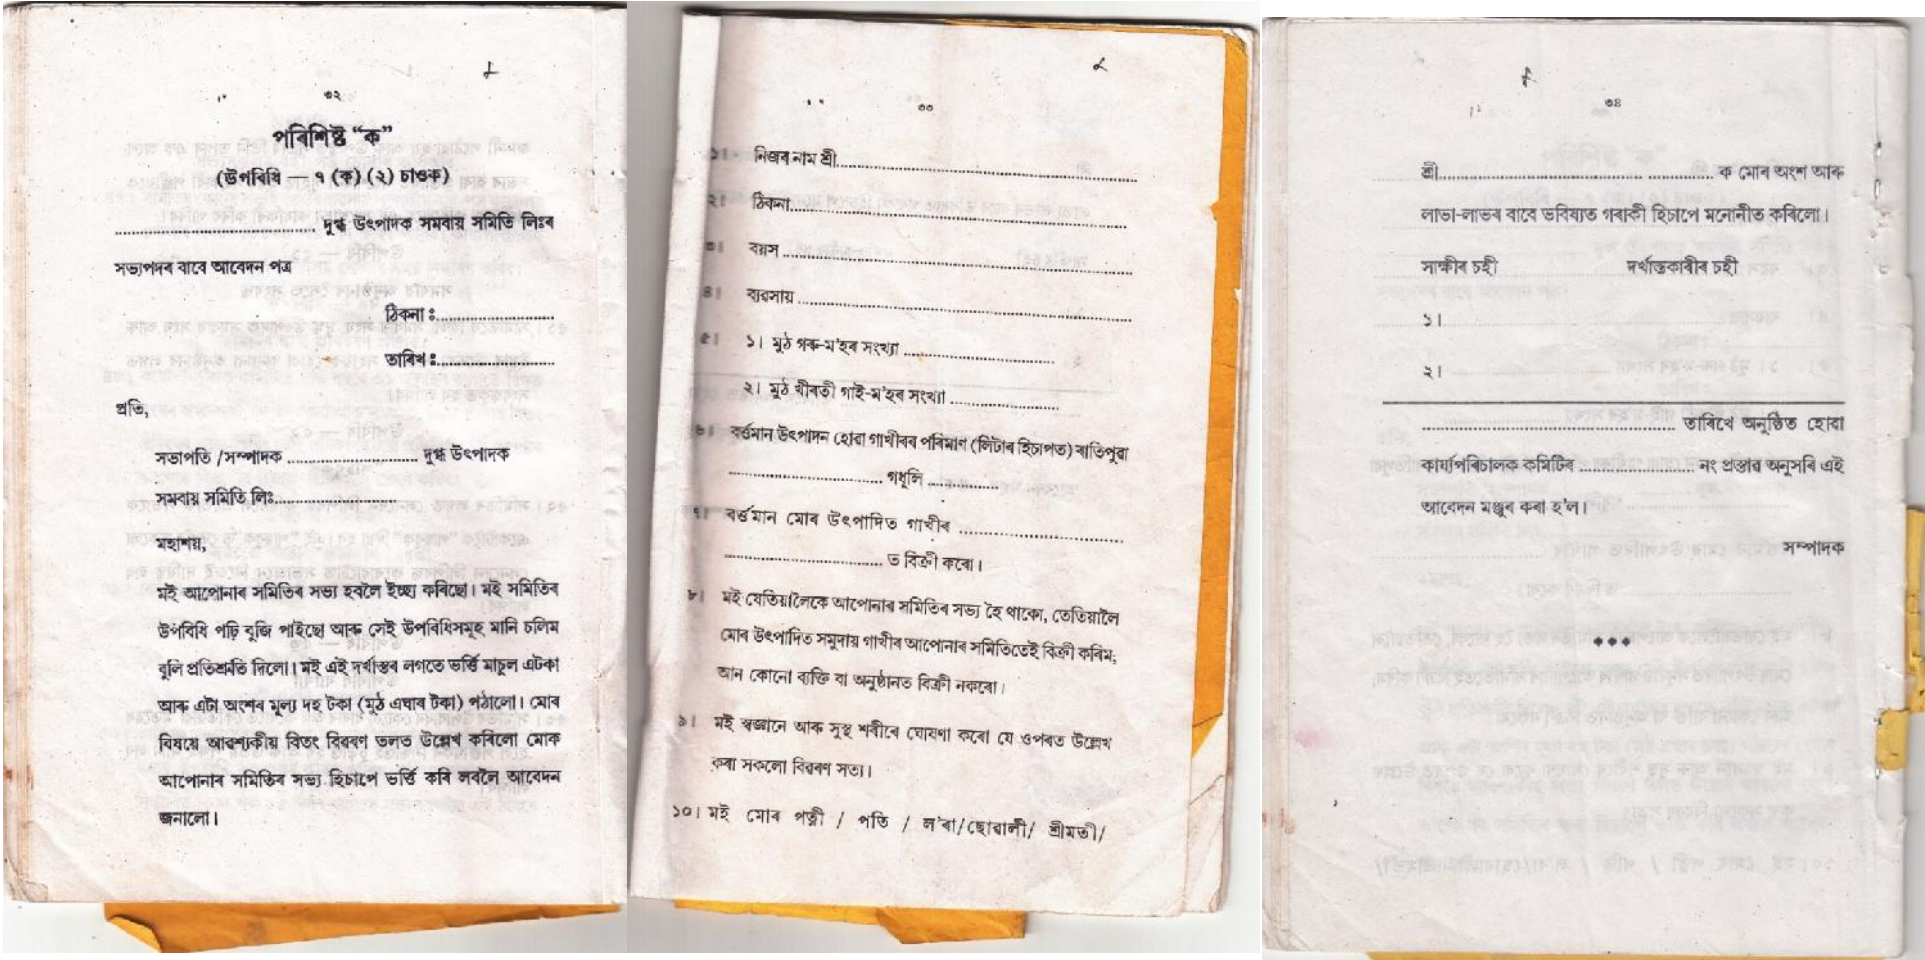 ৩২
পৰিশিষ্ট “ক”
(উপবিধি — ৭ (ক) (২) চাওক)
........................................ দুগ্ধ উৎপাদক সমবায় সমিতি লিঃৰ
সভ্যপদৰ বাবে আবেদন পত্ৰ
ঠিকনা ঃ........................
তাৰিখ ঃ........................
প্ৰতি,
সভাপতি /সম্পাদক .......................... দুগ্ধ উৎপাদক
সমবায় সমিতি লিঃ.........................
মহাশয়,
মই আপোনাৰ সমিতিৰ সভ্য হবলৈ ইচ্ছা কৰিছো। মই সমিতিৰ
উপবিধি পঢ়ি বুজি পাইছো আৰু সেই উপবিধিসমূহ মানি চলিম
বুলি প্ৰতিশ্ৰুতি দিলো। মই এই দৰ্খাস্তৰ লগতে ভৰ্ত্তি মাচুল এটকা
আৰু এটা অংশৰ মূল্য দহ টকা (মুঠ এঘাৰ টকা) পঠালো। মোৰ
বিষয়ে আৱশ্যকীয় বিতং বিৱৰণ তলত উল্লেখ কৰিলো মোক
আপোনাৰ সমিতিৰ সভ্য হিচাপে ভৰ্ত্তি কৰি লবলৈ আবেদন
জনালো।
৩৩
১। নিজৰ নাম শ্ৰী............................................................
২। ঠিকনা....................................................................
৩। বয়স ......................................................................
৪। ব্যৱসায় ...................................................................
৫। ১। মুঠ গৰু-ম'হৰ সংখ্যা ..............................
২। মুঠ খীৰতী গাই-ম'হৰ সংখ্যা ......................
৬। বৰ্ত্তমান উৎপাদন হোৱা গাখীৰৰ পৰিমাণ (লিটাৰ হিচাপত) ৰাতিপুৱা
............................... গধূলি ...................
৭। বৰ্ত্তমান মোৰ উৎপাদিত গাখীৰ .................................
................................ ত বিক্ৰী কৰো।
৮। মই যেতিয়ালৈকে আপোনাৰ সমিতিৰ সভ্য হৈ থাকো, তেতিয়ালৈ
মোৰ উৎপাদিত সমুদায় গাখীৰ আপোনাৰ সমিতিতেই বিক্ৰী কৰিম;
আন কোনো ব্যক্তি বা অনুষ্ঠানত বিক্ৰী নকৰো।
৯। মই স্বজ্ঞানে আৰু সুস্থ শৰীৰে ঘোষণা কৰো যে ওপৰত উল্লেখ
কৰা সকলো বিৱৰণ সত্য।
১০। মই মোৰ পত্নী / পতি / ল'ৰা/ছোৱালী/ শ্ৰীমতী/
৩৪
শ্ৰী......................................... ............. ক মোৰ অংশ আৰু
লাভা-লাভৰ বাবে ভবিষ্যত গৰাকী হিচাপে মনোনীত কৰিলো।
সাক্ষীৰ চহী দৰ্খাস্তকাৰীৰ চহী
১।
২।
.................................................. তাৰিখে অনুষ্ঠিত হোৱা
কাৰ্য্যপৰিচালক কমিটিৰ ....................... নং প্ৰস্তাৱ অনুসৰি এই
আবেদন মঞ্জুৰ কৰা হ'ল।
সম্পাদক
***